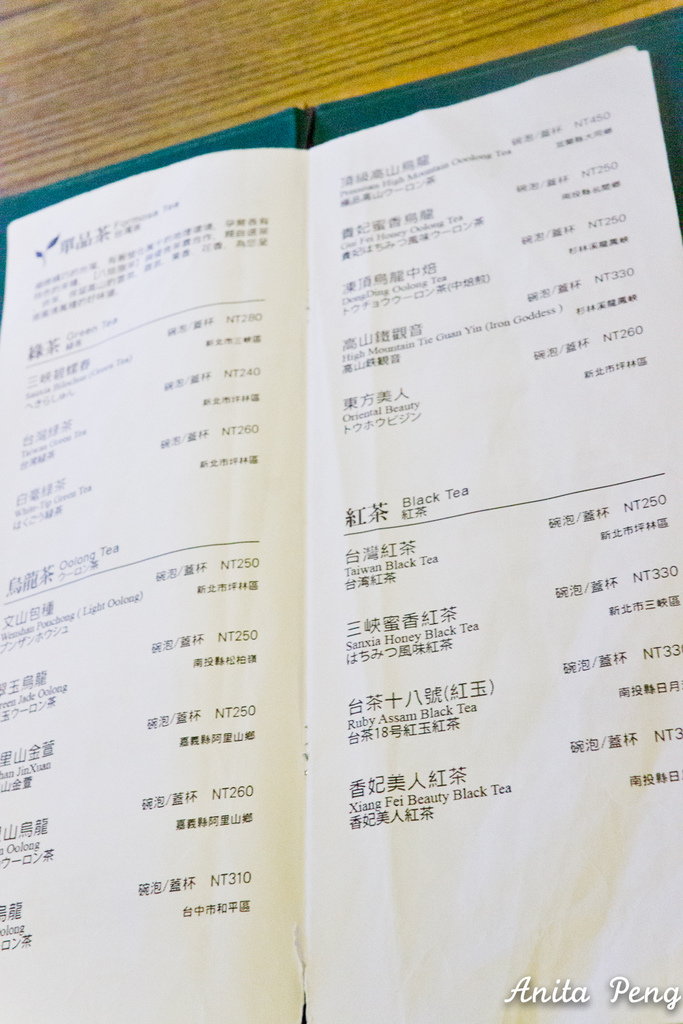 單品茶 Formosa Tea
台湾茶
綠茶 Green Tea
緑茶
三峽碧螺春 碗泡/蓋杯 NT280
Sanxia Biluchun (Green Tea) 新北市三峽區
へきらしゅん
台灣綠茶 碗泡/蓋杯 NT240
Taiwan Green Tea 新北市坪林區
台湾緑茶
白毫綠茶 碗泡/蓋杯 NT260
White-Tip Green Tea 新北市坪林區
はくごう緑茶
烏龍茶 Oolong Tea
ウーロン茶
文山包種 碗泡/蓋杯 NT250
Wenshan Pouchong ( Light Oolong) 新北市坪林區
ブンザンホウシュ
玉烏龍 碗泡/蓋杯 NT250
reen Jade Oolong 南投縣松柏嶺
玉ウーロン茶
里山金萱 碗泡/蓋杯 NT250
han JinXuan 嘉義縣阿里山鄉
山金萱
山烏龍 碗泡/蓋杯 NT260
n Oolong 嘉義縣阿里山鄉
ウーロン茶
烏龍 碗泡/蓋杯 NT310
olong 台中市和平區
ロン茶
頂級高山烏龍 碗泡/蓋杯 NT450
Premium High Mountain Ooolong Tea 宜蘭縣大同鄉
極品高山ウーロン茶
貴妃蜜香烏龍 碗泡/蓋杯 NT250
Gui Fei Honey Oolong Tea 南投縣名間鄉
貴妃はちみつ風味ウーロン茶
凍頂烏龍中焙 碗泡/蓋杯 NT250
DongDing Oolong Tea 杉林溪龍鳳峽
トウチョウウーロン茶(中焙煎)
高山鐵觀音 碗泡/蓋杯 NT330
High Mountain Tie Guan Yin (Iron Goddess ) 杉林溪龍鳳峽
高山鉄観音
東方美人 碗泡/蓋杯 NT260
Oriental Beauty 新北市坪林區
トウホウビジン
紅茶 Black Tea
紅茶
台灣紅茶 碗泡/蓋杯 NT250
Taiwan Black Tea 新北市坪林區
台湾紅茶
三峽蜜香紅茶 碗泡/蓋杯 NT330
Sanxia Honey Black Tea 新北市三峽區
はちみつ風味紅茶
台茶十八號(紅玉) 碗泡/蓋杯 NT330
Ruby Assam Black Tea 南投縣日月
台茶18号紅玉紅茶
香妃美人紅茶 碗泡/蓋杯 NT3
Xiang Fei Beauty Black Tea 南投縣日
香妃美人紅茶
Anita Peng